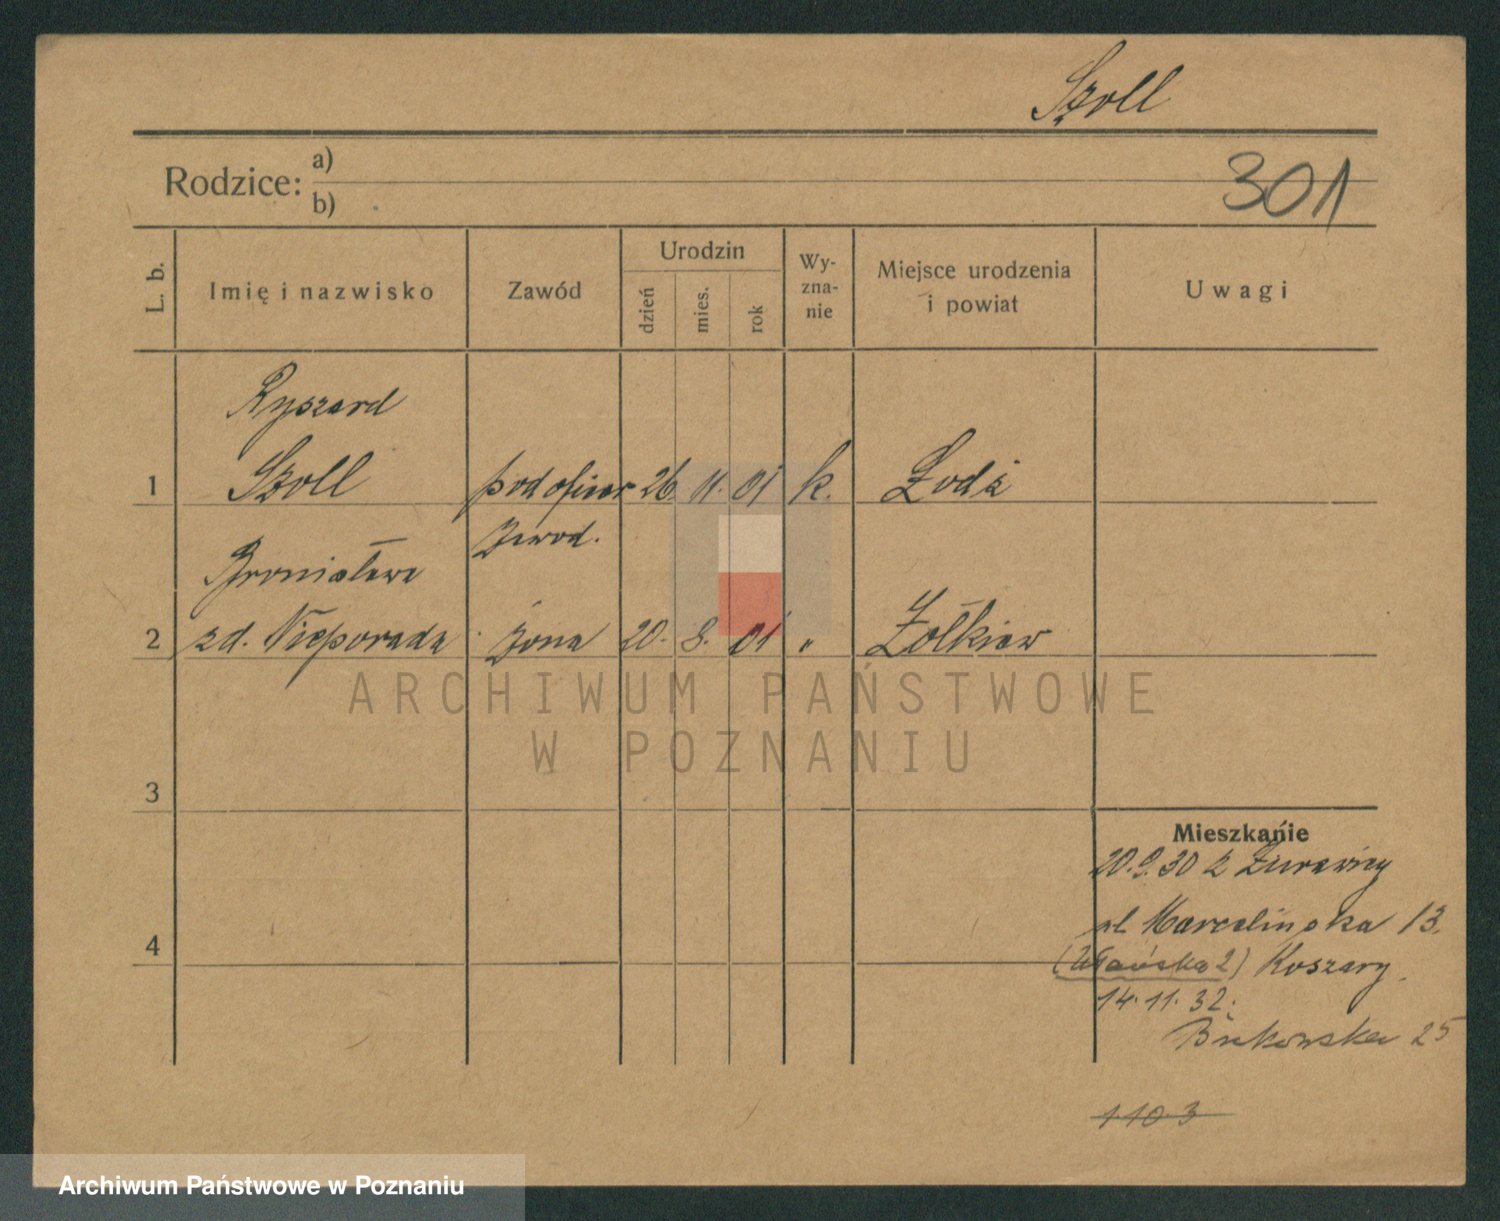 Szoll
301
Rodzice: a)
b)
L. b.
Imię i nazwisko
Zawód
Urodzin
dzień
mies.
rok
Wy-
zna-
nie
Miejsce urodzenia
i powiat
Uwagi
Ryszard
1 Szoll podoficer 26. 11. 01 k. Łódź
zawod.
Bronisława
2 zd. Nieporada żona 20. 8. 01 " Żółkiew
ARCHIWUM PAŃSTWOWE
W POZNANIU
3
Mieszkanie
20.9.30 z Żurawicy
ul Marcelinska 13.
4
(Ułańska 2) Koszary.
14.11.32.
Bukowska 25
110.3
Archiwum Państwowe w Poznaniu